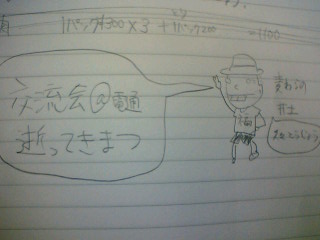 1パック¥300×3 + 1パック200 = 1100
交流会@電通
逝ってきまつ
麦わらの
井土
福